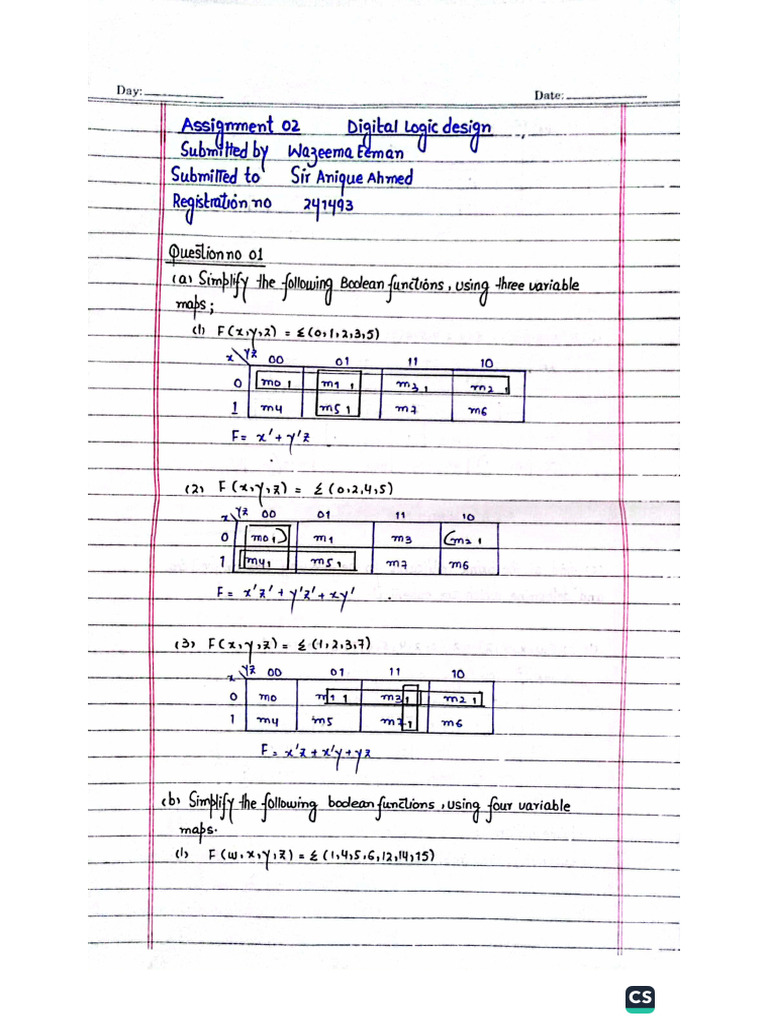 Day:
Date:
Assignment 02 Digital Logic design
Submitted by Wazeema Eeman
Submitted to Sir Anique Ahmed
Registration no 241493
Question no 01
(a) Simplify the following Boolean functions, using three variable
maps;
(1) F(x,y,z) = Σ(0,1,2,3,5)
x yz 00 01 11 10
0 m0 1 m1 1 m3 1 m2 1
1 m4 m5 1 m7 m6
F= x' + y'z
(2) F(x,y,z) = Σ(0,2,4,5)
x yz 00 01 11 10
0 m0 1 m1 m3 m2 1
1 m4 1 m5 1 m7 m6
F= x'z' + y'z' + xy'
(3) F(x,y,z) = Σ(1,2,3,7)
x yz 00 01 11 10
0 m0 m1 1 m3 1 m2 1
1 m4 m5 m7 1 m6
F= x'z + x'y + yz
(b) Simplify the following boolean functions, using four variable
maps.
(1) F(w,x,y,z) = Σ(1,4,5,6,12,14,15)
CS